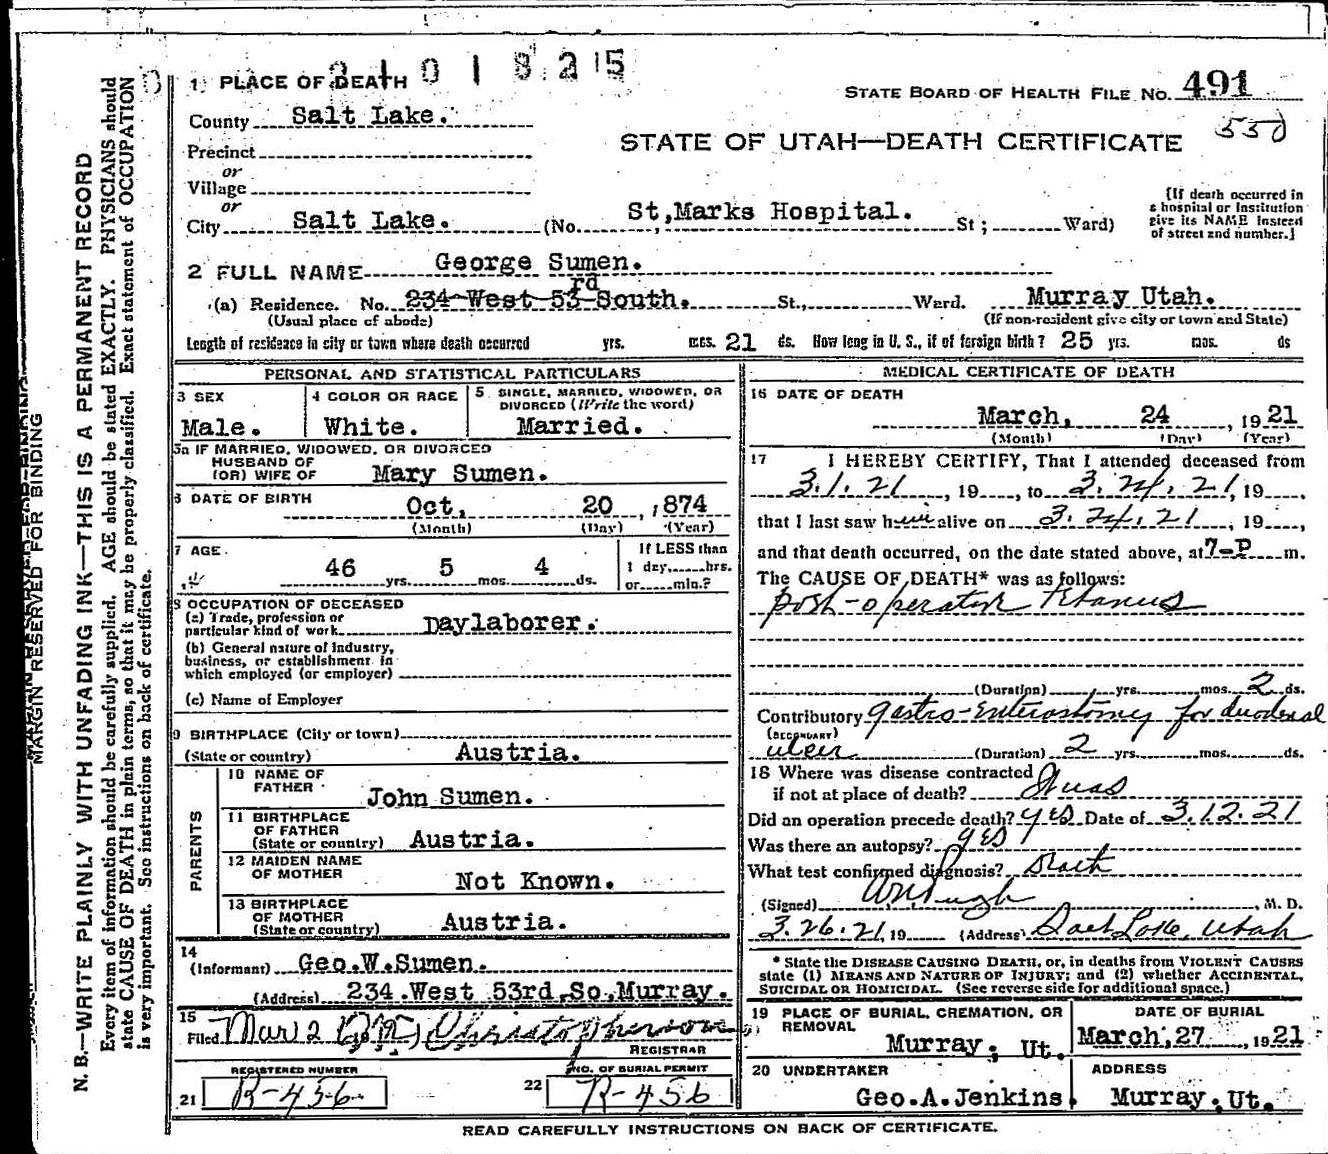 2101825
1 PLACE OF DEATH
STATE BOARD OF HEALTH FILE NO. 491
County Salt Lake.
550
STATE OF UTAH—DEATH CERTIFICATE
Precinct
or
Village
or
City Salt Lake. (No. St,Marks Hospital. St; Ward)
[If death occurred in
a hospital or institution
give its NAME instead
of street and number.]
2 FULL NAME George Sumen.
(a) Residence. No. 234 West 53rd South. St., Ward. Murray Utah.
(Usual place of abode) (If non-resident give city or town and State)
Length of residence in city or town where death occurred yrs. mos. 21 ds. How long in U. S., if of foreign birth? 25 yrs. mos. ds
PERSONAL AND STATISTICAL PARTICULARS
3 SEX
Male.
4 COLOR OR RACE
White.
5 SINGLE, MARRIED, WIDOWED, OR
DIVORCED (Write the word)
Married.
5a IF MARRIED, WIDOWED, OR DIVORCED
HUSBAND OF
(OR) WIFE OF Mary Sumen.
6 DATE OF BIRTH
Oct, 20, 1874
(Month) (Day) (Year)
7 AGE
46 yrs. 5 mos. 4 ds.
If LESS than
1 day, hrs.
or min.?
8 OCCUPATION OF DECEASED
(a) Trade, profession or
particular kind of work Daylaborer.
(b) General nature of Industry,
business, or establishment in
which employed (or employer)
(c) Name of Employer
9 BIRTHPLACE (City or town)
(State or country) Austria.
PARENTS
10 NAME OF
FATHER
John Sumen.
11 BIRTHPLACE
OF FATHER
(State or country) Austria.
12 MAIDEN NAME
OF MOTHER
Not Known.
13 BIRTHPLACE
OF MOTHER
(State or country) Austria.
14
(Informant) Geo.W.Sumen.
(Address) 234 West 53rd,So,Murray.
15
Filed Mar 2 Christopherson
REGISTRAR
REGISTERED NUMBER
21 R-456
NO. OF BURIAL PERMIT
22 R-456
MEDICAL CERTIFICATE OF DEATH
16 DATE OF DEATH
March, 24, 1921
(Month) (Day) (Year)
17 I HEREBY CERTIFY, That I attended deceased from
3.1.21, 19, to 3.24.21, 19,
that I last saw him alive on 3.24.21, 19,
and that death occurred, on the date stated above, at 7-P m.
The CAUSE OF DEATH* was as follows:
post-operative Tetanus
(Duration) yrs. mos. 2 ds.
Contributory gastro-enterostomy for duodenal
(SECONDARY)
ulcer (Duration) 2 yrs. mos. ds.
18 Where was disease contracted
if not at place of death?
Did an operation precede death? yes Date of 3.12.21
Was there an autopsy? yes
What test confirmed diagnosis?
(Signed) Pugh, M. D.
3.26.21, 19 (Address) Salt Lake, Utah
* State the DISEASE CAUSING DEATH, or, in deaths from VIOLENT CAUSES
state (1) MEANS AND NATURE OF INJURY; and (2) whether ACCIDENTAL,
SUICIDAL OR HOMICIDAL. (See reverse side for additional space.)
19 PLACE OF BURIAL, CREMATION, OR
REMOVAL
Murray, Ut.
DATE OF BURIAL
March, 27, 1921
20 UNDERTAKER
Geo.A.Jenkins.
ADDRESS
Murray, Ut.
READ CAREFULLY INSTRUCTIONS ON BACK OF CERTIFICATE.
MARGIN RESERVED FOR BINDING
N. B.—WRITE PLAINLY WITH UNFADING INK—THIS IS A PERMANENT RECORD
Every item of information should be carefully supplied. AGE should be stated EXACTLY. PHYSICIANS should
state CAUSE OF DEATH in plain terms, so that it may be properly classified. Exact statement of OCCUPATION
is very important. See instructions on back of certificate.